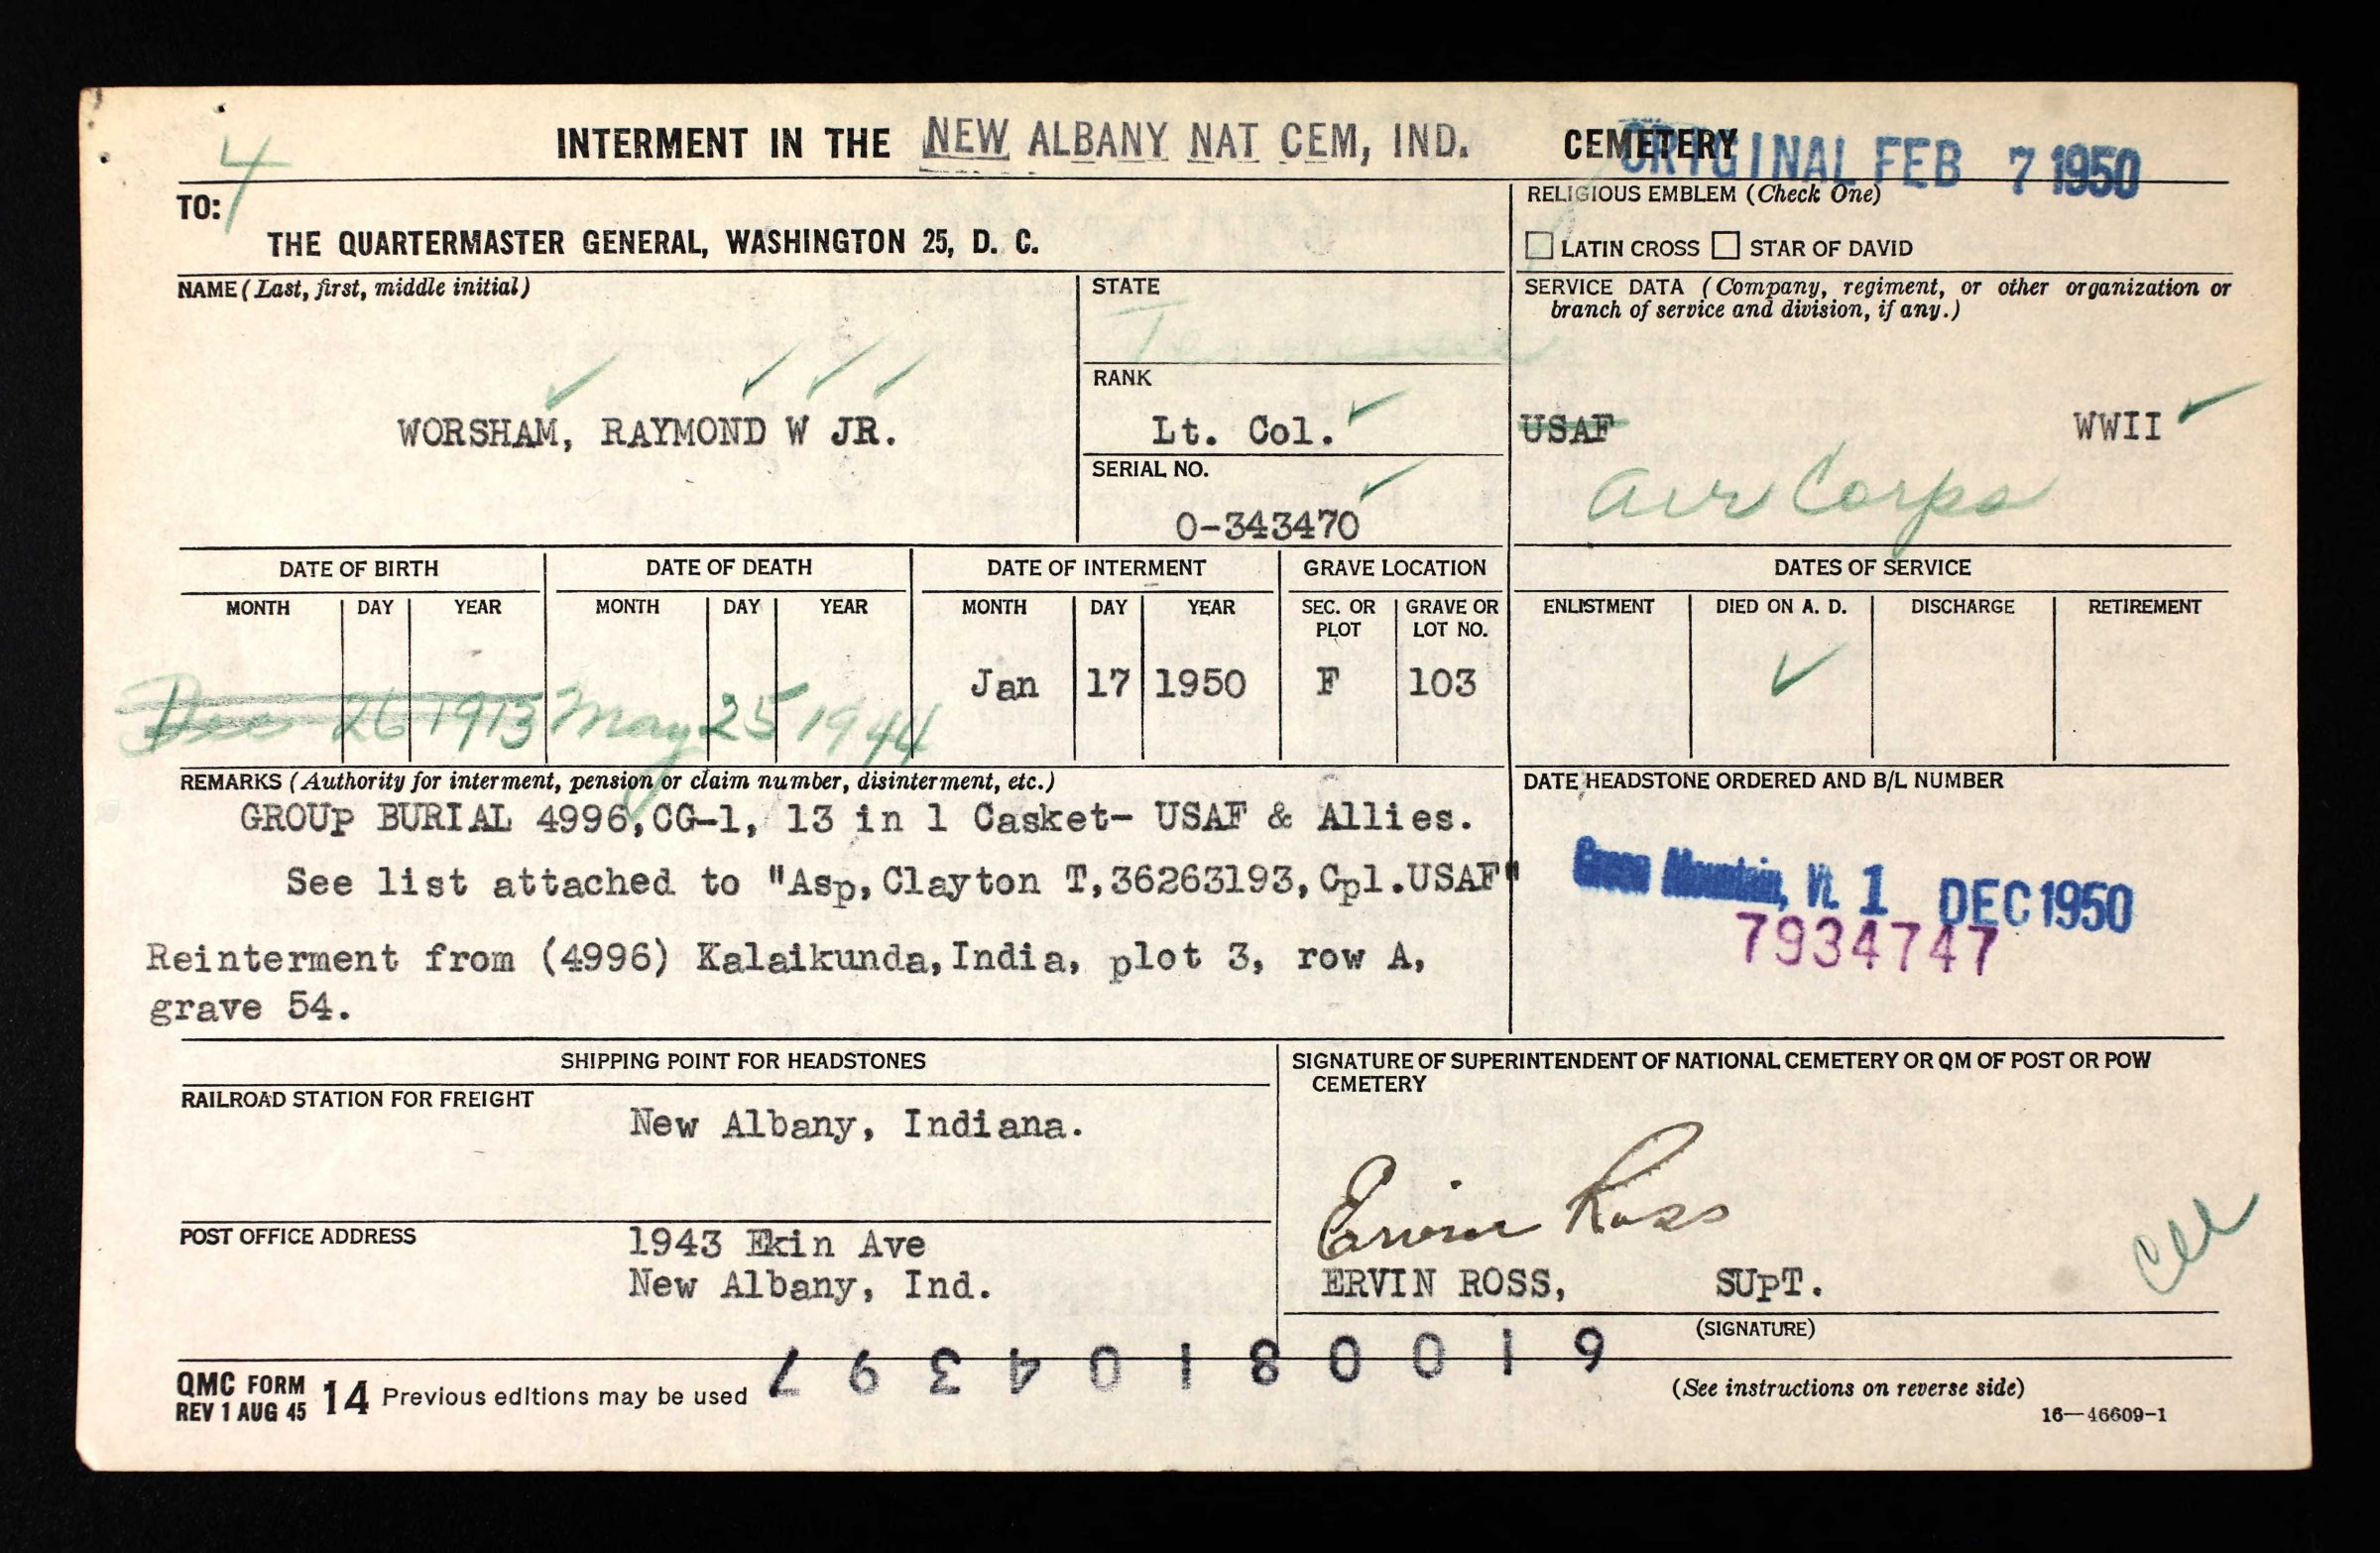 4
INTERMENT IN THE NEW ALBANY NAT CEM, IND. CEMETERY
ORIGINAL FEB 7 1950
TO:
THE QUARTERMASTER GENERAL, WASHINGTON 25, D. C.
RELIGIOUS EMBLEM (Check One)
LATIN CROSS STAR OF DAVID
NAME (Last, first, middle initial)
WORSHAM, RAYMOND W JR.
STATE
RANK
Lt. Col.
SERIAL NO.
O-343470
SERVICE DATA (Company, regiment, or other organization or
branch of service and division, if any.)
USAF WWII
Air Corps
DATE OF BIRTH DATE OF DEATH DATE OF INTERMENT GRAVE LOCATION
MONTH DAY YEAR MONTH DAY YEAR MONTH DAY YEAR SEC. OR PLOT GRAVE OR LOT NO.
Dec 26 1913 May 25 1944 Jan 17 1950 F 103
DATES OF SERVICE
ENLISTMENT DIED ON A. D. DISCHARGE RETIREMENT
REMARKS (Authority for interment, pension or claim number, disinterment, etc.)
GROUP BURIAL 4996,CG-1, 13 in 1 Casket- USAF & Allies.
See list attached to "Asp,Clayton T,36263193,Cpl.USAF"
Reinterment from (4996) Kalaikunda,India, plot 3, row A,
grave 54.
DATE HEADSTONE ORDERED AND B/L NUMBER
Green Mountain, Vt. 1 DEC 1950
7934747
SHIPPING POINT FOR HEADSTONES
RAILROAD STATION FOR FREIGHT
New Albany, Indiana.
POST OFFICE ADDRESS
1943 Ekin Ave
New Albany, Ind.
SIGNATURE OF SUPERINTENDENT OF NATIONAL CEMETERY OR QM OF POST OR POW
CEMETERY
Ervin Ross
ERVIN ROSS, SUPT.
(SIGNATURE)
6 1 0 0 8 1 0 4 3 9 7
QMC FORM
REV 1 AUG 45 14 Previous editions may be used
(See instructions on reverse side)
16—46609-1